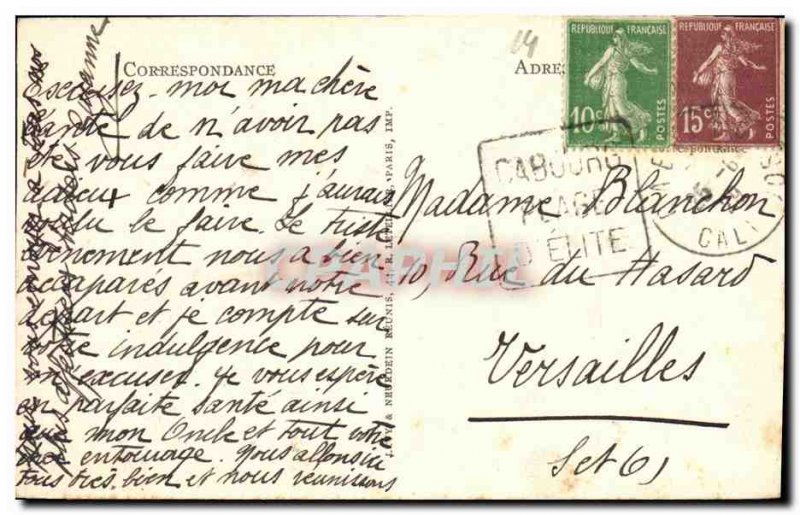 CORRESPONDANCE
Excusez-moi ma chère
Tante de n'avoir pas
été vous faire mes
adieux comme j'aurais
voulu le faire. Le triste
évènement nous a bien
accaparés avant notre
départ et je compte sur
votre indulgence pour
m'excuser. Je vous espère
en parfaite santé ainsi
que mon Oncle et tout votre
entourage. Nous allons ici
tous très bien et nous réunissons
Suzanne
LÉVY & NEURDEIN RÉUNIS, 44, R. LETELLIER, PARIS, IMP.
14
ADRES
REPUBLIQUE FRANÇAISE
10c
POSTES
REPUBLIQUE FRANÇAISE
15c
POSTES
CABOURG
PLAGE
D'ÉLITE
CALV
Madame Blanchon
10, Rue du Hasard
Versailles
Set O)
CPAPHIL